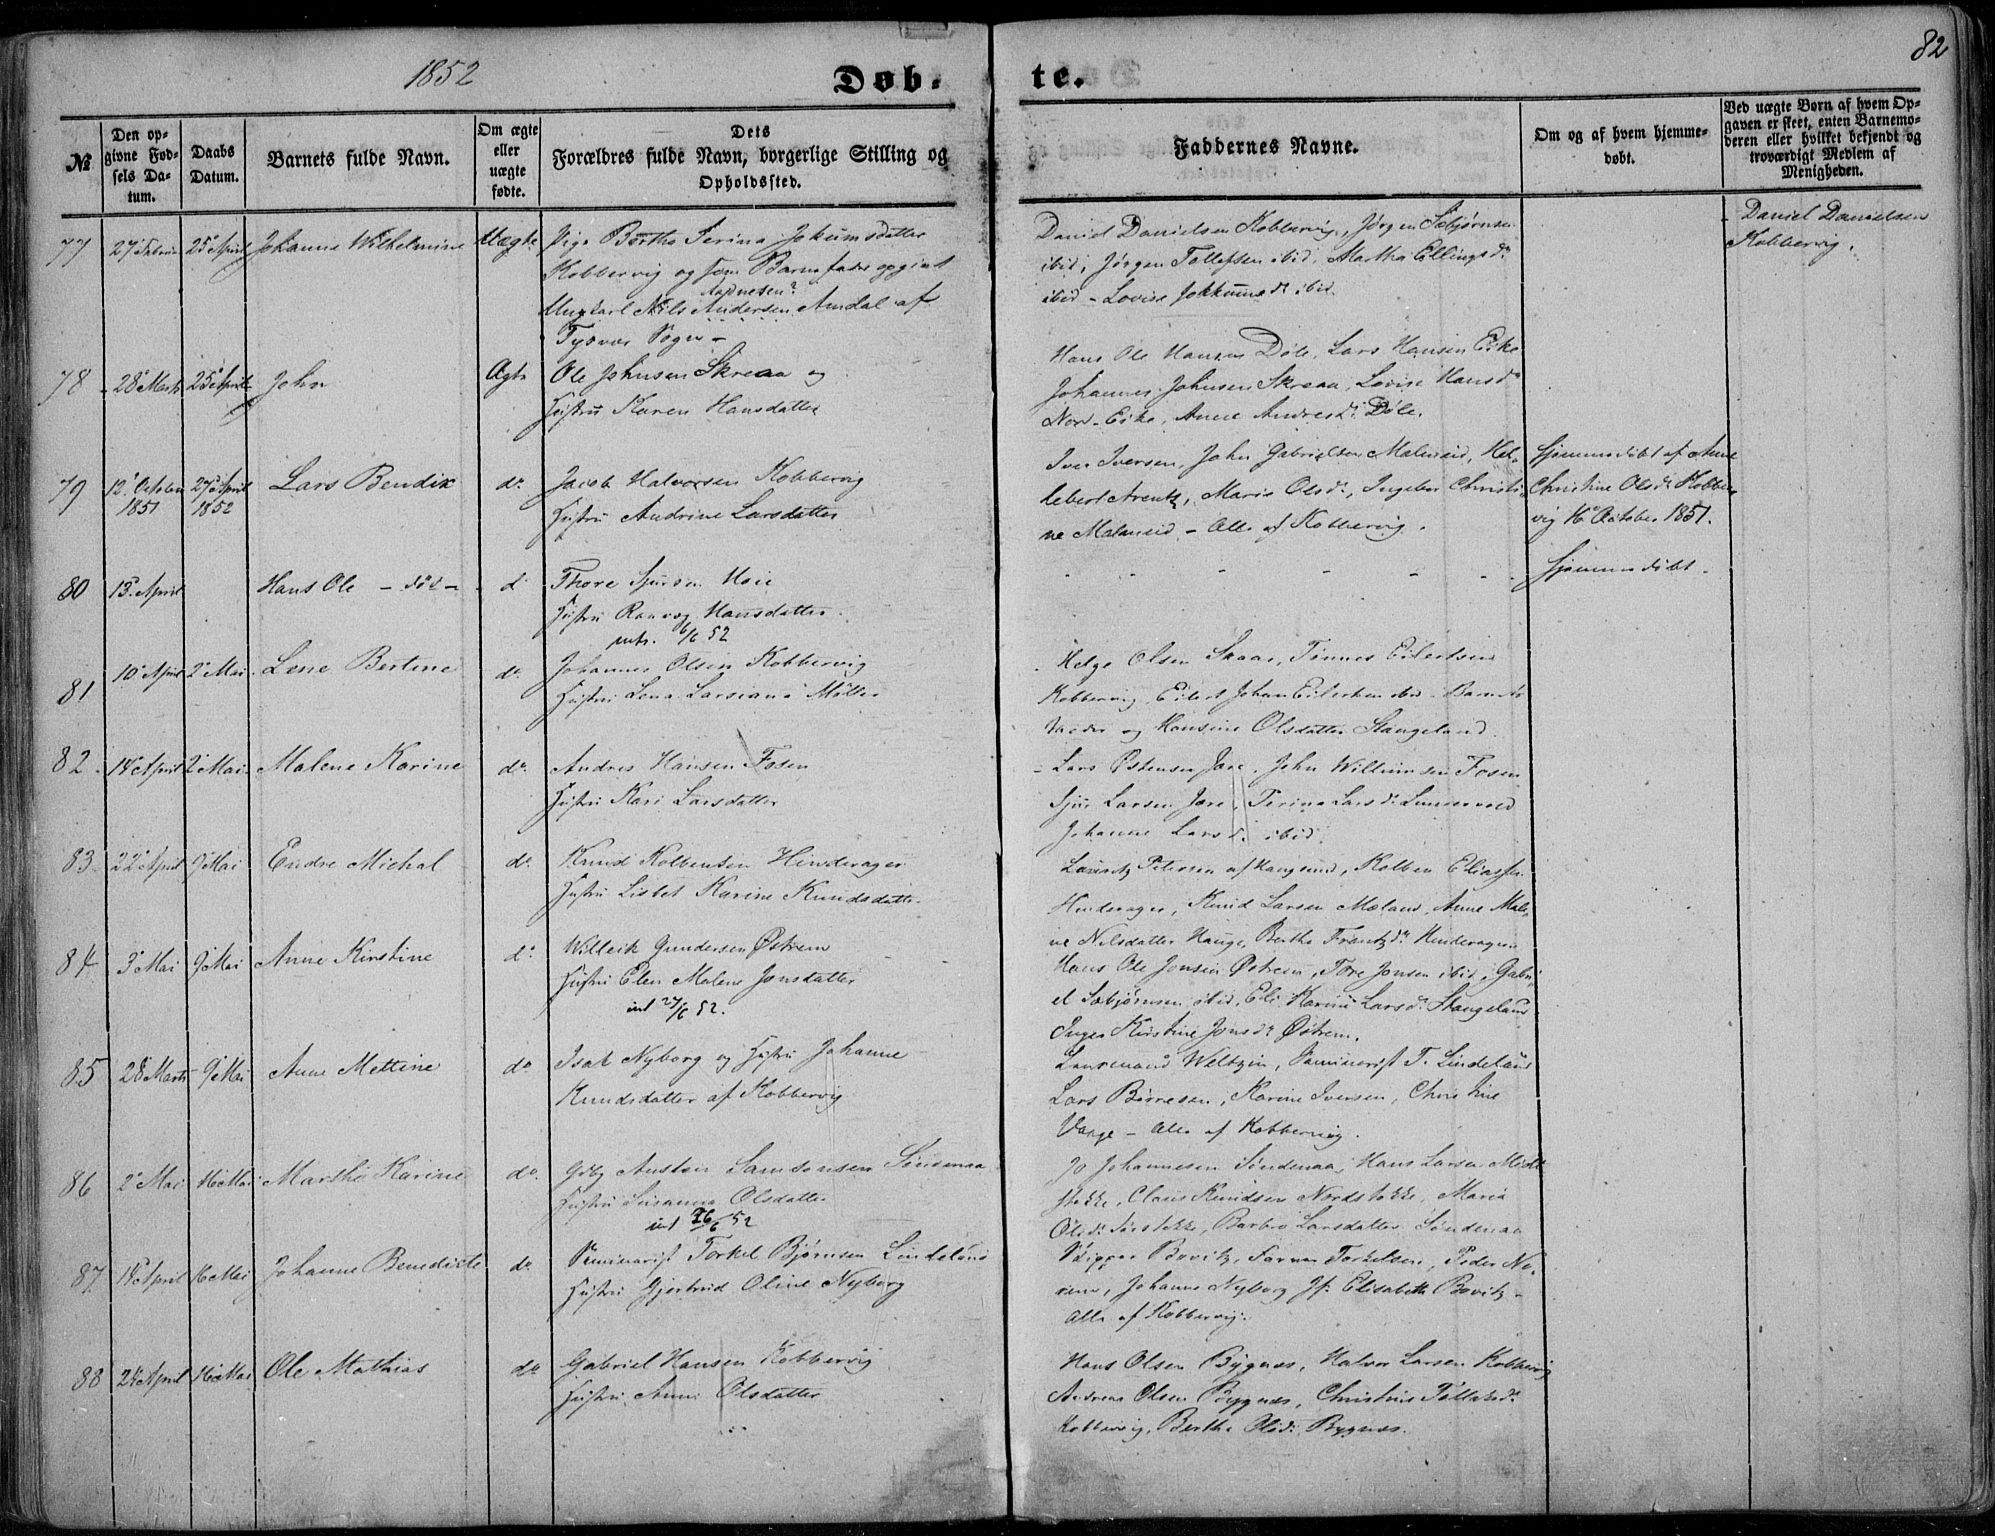 1852
Døb-
te.
82
№
Den op-
givne Fød-
sels Da-
tum.
Daabs
Datum.
Barnets fulde Navn.
Om ægte
eller
uægte
fødte.
Dets
Forældres fulde Navn, borgerlige Stilling og
Opholdssted.
Faddernes Navne.
Om og af hvem hjemme-
døbt.
Ved uægte Børn af hvem Op-
gaven er skeet, enten Barnemo-
deren eller hvilket bekjendt og
troværdigt Medlem af
Menigheden.
77 25 April Johanne Wilhelmine Uægte
Pige Berthe Serina Jokumsdatter
Kobbervig og som Barnefader opgivet
Aadnesen?
Ungkarl Nils Andersen Amdal af
Tysvær Sogn -
Daniel Danielsen Kobbervig, Jørgen Sæbjørnsen
ibid, Jørgen Tollefsen ibid, Martha Ellingsdr
ibid - Lovise Jokkumsdr ibid.
- Daniel Danielsen
Kobbervig.
78 28 Marts 25 April John Ægte
Ole Johnsen Skreaa og
Hustru Karen Hansdatter
Hans Ole Hansen Døle, Lars Hansen Eike
Johannes Johnsen Skreaa, Lovise Hansdr
Nor-Eike, Anne Andresdr Døle.
79 12 October 1851 27 April 1852 Lars Bendix do
Jacob Halvorsen Kobbervig
Hustru Andrine Larsdatter
Iver Iversen, John Gabrielsen Maleneid, Hel-
lebert Arentz, Marie Olsdr, Ingebor Christi-
ne Malaneid - Alle af Kobbervig.
Hjemmedøbt af Anne
Christine Olsdr Kobber-
vig 16 October 1851.
80 13 April Hans Ole - død - d
Thore Sjursen
Hustru Ranveg Hansdatter
6/6 52
Hjemmedøbt.
81 10 April 2 Mai Lene Bertine do
Johannes Olsen Kobbervig
Hustru Lena Larsiana Møller
Helge Olsen Skaar, Tønnes Eilertsen
Kobbervig, Eilert Johan Eilertsen ibid - Barnets
Moder og Hansine Olsdatter Stangeland.
82 14 April 2 Mai Malene Karine do
Andres Hansen Fosen
Hustru Kari Larsdatter
- Lars Østensen Jære, John Willumsen Fosen
Sjur Larsen Jære, Serina Larsdr
Johanne Larsdr ibid.
83 22 April 9 Mai Endre Michal do
Knud Kolbensen Hinderager
Hustru Lisbet Karine Knudsdatter
Lauritz Petersen af Haugsund, Kolben Eliassen
Hinderager, Knud Larsen Mæland, Anne Male-
ne Nilsdatter Hauge, Berthe Frantzdr Hinderager
84 3 Mai 9 Mai Anne Kirstine do
Willeik Gundersen Østrem
Hustru Elen Malene Jonsdatter
int 27/6 52.
Hans Ole Jonsen Østrem, Tore Jonsen ibid, Gabri-
el Sæbjørnsen ibid, Eli Karine Larsdr Stangeland
Inger Kirstine Jonsdr Østrem.
85 28 Marts 9 Mai Anne Mettine do
Isak Nyborg og Hustru Johanne
Knudsdatter af Kobbervig
Lensmand Weltzin, Seminarist T. Lindeland
Lars Børresen, Karine Iversen, Christine
Vange - Alle af Kobbervig.
86 2 Mai 16 Mai Marthe Karine do
Gdbr Austen Samsonsen Søndenaa
Hustru Susanna Olsdatter
int 26/6 52
Jo Johannesen Søndenaa, Hans Larsen Midt-
stokke, Claus Knudsen Nordstokke, Maria
Olsdr Sørstokke, Barbro Larsdatter Søndenaa
87 18 April 16 Mai Johanne Benedicte do
Seminarist Torkel Bjørnsen Lindeland
Hustru Gjertrud Oline Nyborg
Skipper Bovitz, Farver Torkelsen, Peder
Johanne Nyborg Jf. Elisabeth Bovitz -
Alle af Kobbervig.
88 24 April 16 Mai Ole Mathias do
Gabriel Hansen Kobbervig
Hustru Anne Olsdatter
Hans Olsen Bygnæs, Halvor Larsen Kobbervig
Andreas Olsen Bygnæs, Christine Tollaksdr
Kobbervig, Berthe Olsdr Bygnæs.